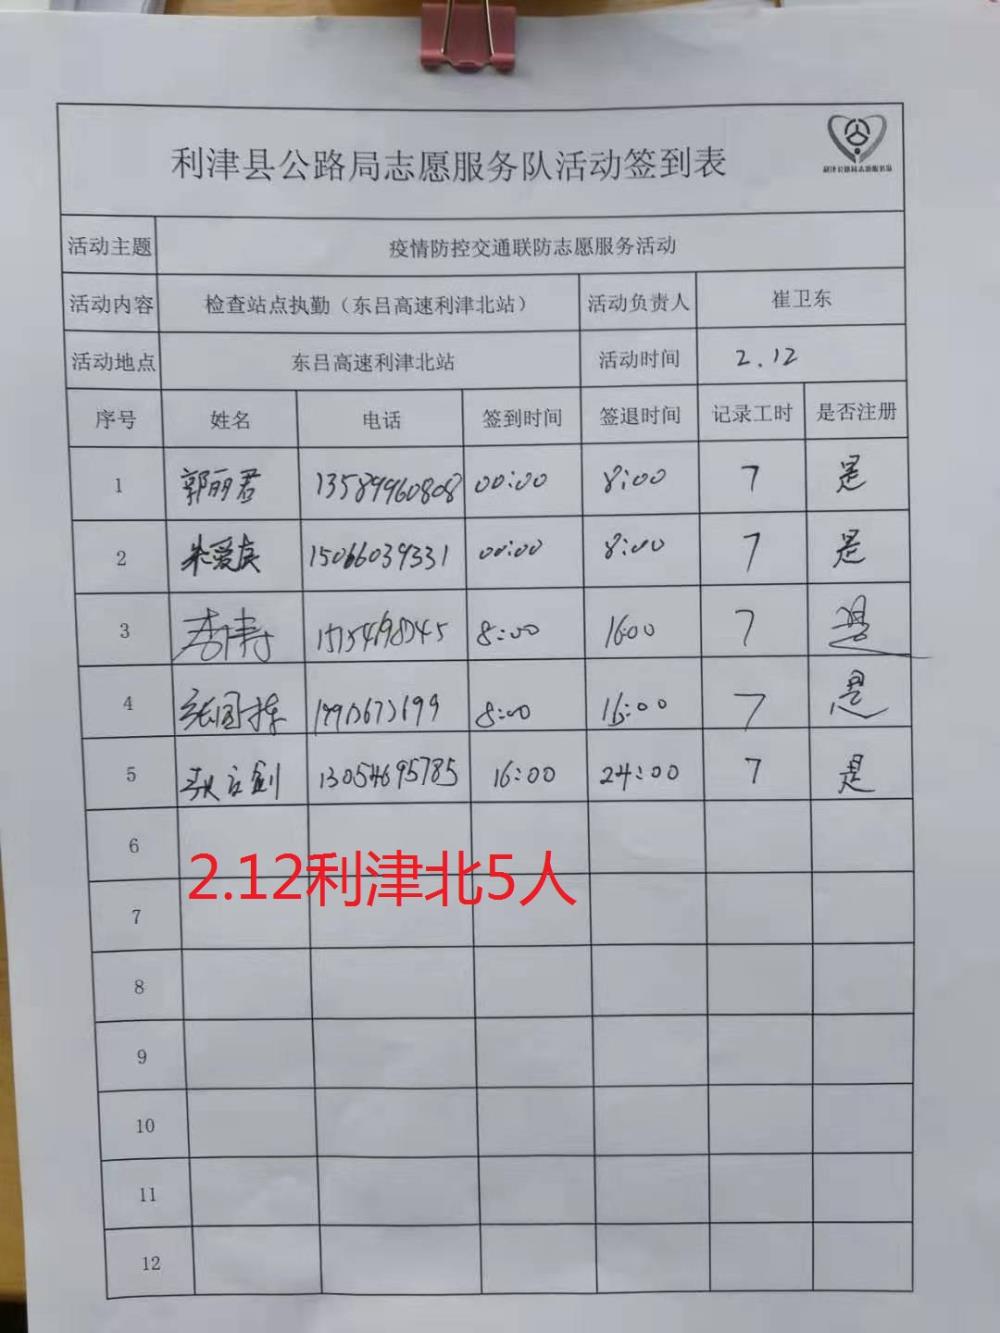 利津县公路局志愿服务队活动签到表
利津公路局志愿服务队
活动主题 疫情防控交通联防志愿服务活动
活动内容 检查站点执勤（东吕高速利津北站） 活动负责人 崔卫东
活动地点 东吕高速利津北站 活动时间 2.12
序号 姓名 电话 签到时间 签退时间 记录工时 是否注册
1 郭丽君 13589960808 00:00 8:00 7 是
2 朱爱英 15066039331 00:00 8:00 7 是
3 李涛 8:00 16:00 7 是
4 张国栋 8:00 16:00 7 是
5 13054695785 16:00 24:00 7 是
6
2.12利津北5人
7
8
9
10
11
12